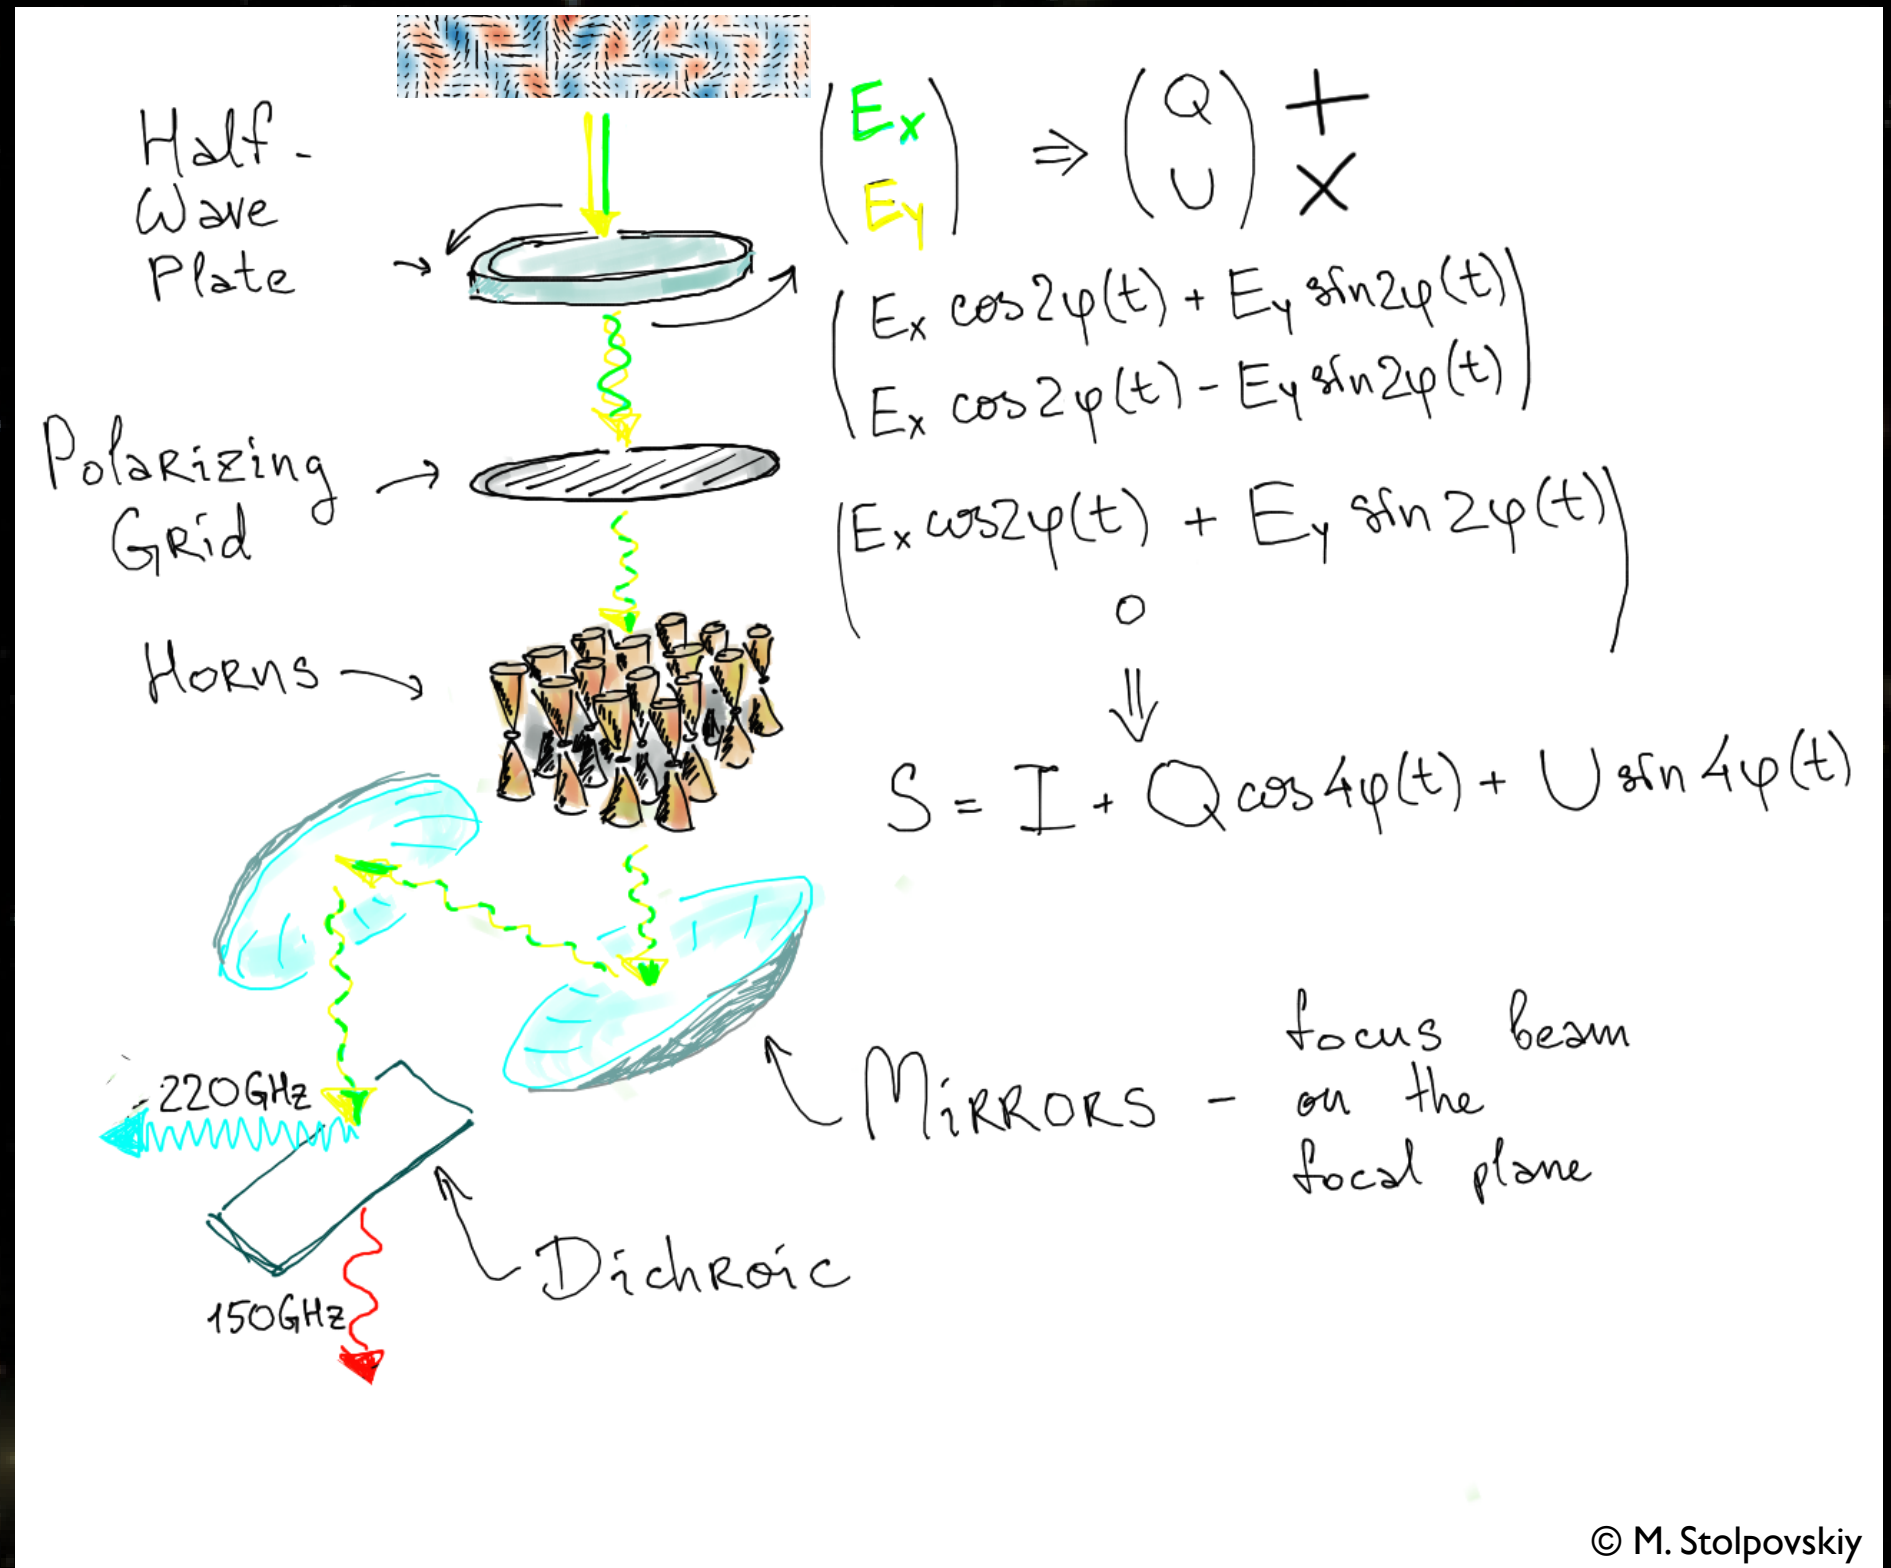 Half-
Wave
Plate
(Ex
Ey) ⇒ (Q
U) +
×
(Ex cos2φ(t) + Ey sin2φ(t)
Ex cos2φ(t) - Ey sin2φ(t))
Polarizing
Grid
(Ex cos2φ(t) + Ey sin2φ(t)
0)
⇓
Horns
S = I + Q cos4φ(t) + U sin4φ(t)
Mirrors - focus beam
on the
focal plane
220GHz
Dichroic
150GHz
© M. Stolpovskiy